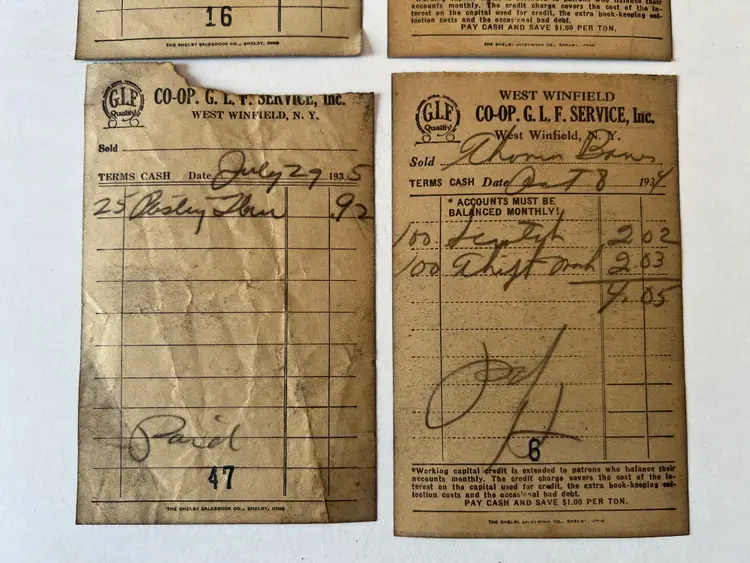 16
THE SHELBY SALESBOOK CO., SHELBY, OHIO
accounts monthly. The credit charge covers the cost of the in-
terest on the capital used for credit, the extra book-keeping col-
lection costs and the occasional bad debt.
PAY CASH AND SAVE $1.00 PER TON.
THE SHELBY SALESBOOK CO., SHELBY, OHIO
G.L.F
Quality
CO-OP. G. L. F. SERVICE, Inc.
WEST WINFIELD, N. Y.
Sold
TERMS CASH Date July 29 1935
25 .92
Paid
47
THE SHELBY SALESBOOK CO., SHELBY, OHIO
G.L.F
Quality
WEST WINFIELD
CO-OP. G. L. F. SERVICE, Inc.
West Winfield, N. Y.
Sold Thomas
TERMS CASH Date Oct 8 1934
* ACCOUNTS MUST BE
BALANCED MONTHLY!
100 2.02
100 Thift mash 2.03
4.05
Pd
6
*Working capital credit is extended to patrons who balance their
accounts monthly. The credit charge covers the cost of the in-
terest on the capital used for credit, the extra book-keeping col-
lection costs and the occas'onal bad debt.
PAY CASH AND SAVE $1.00 PER TON.
THE SHELBY SALESBOOK CO., SHELBY, OHIO